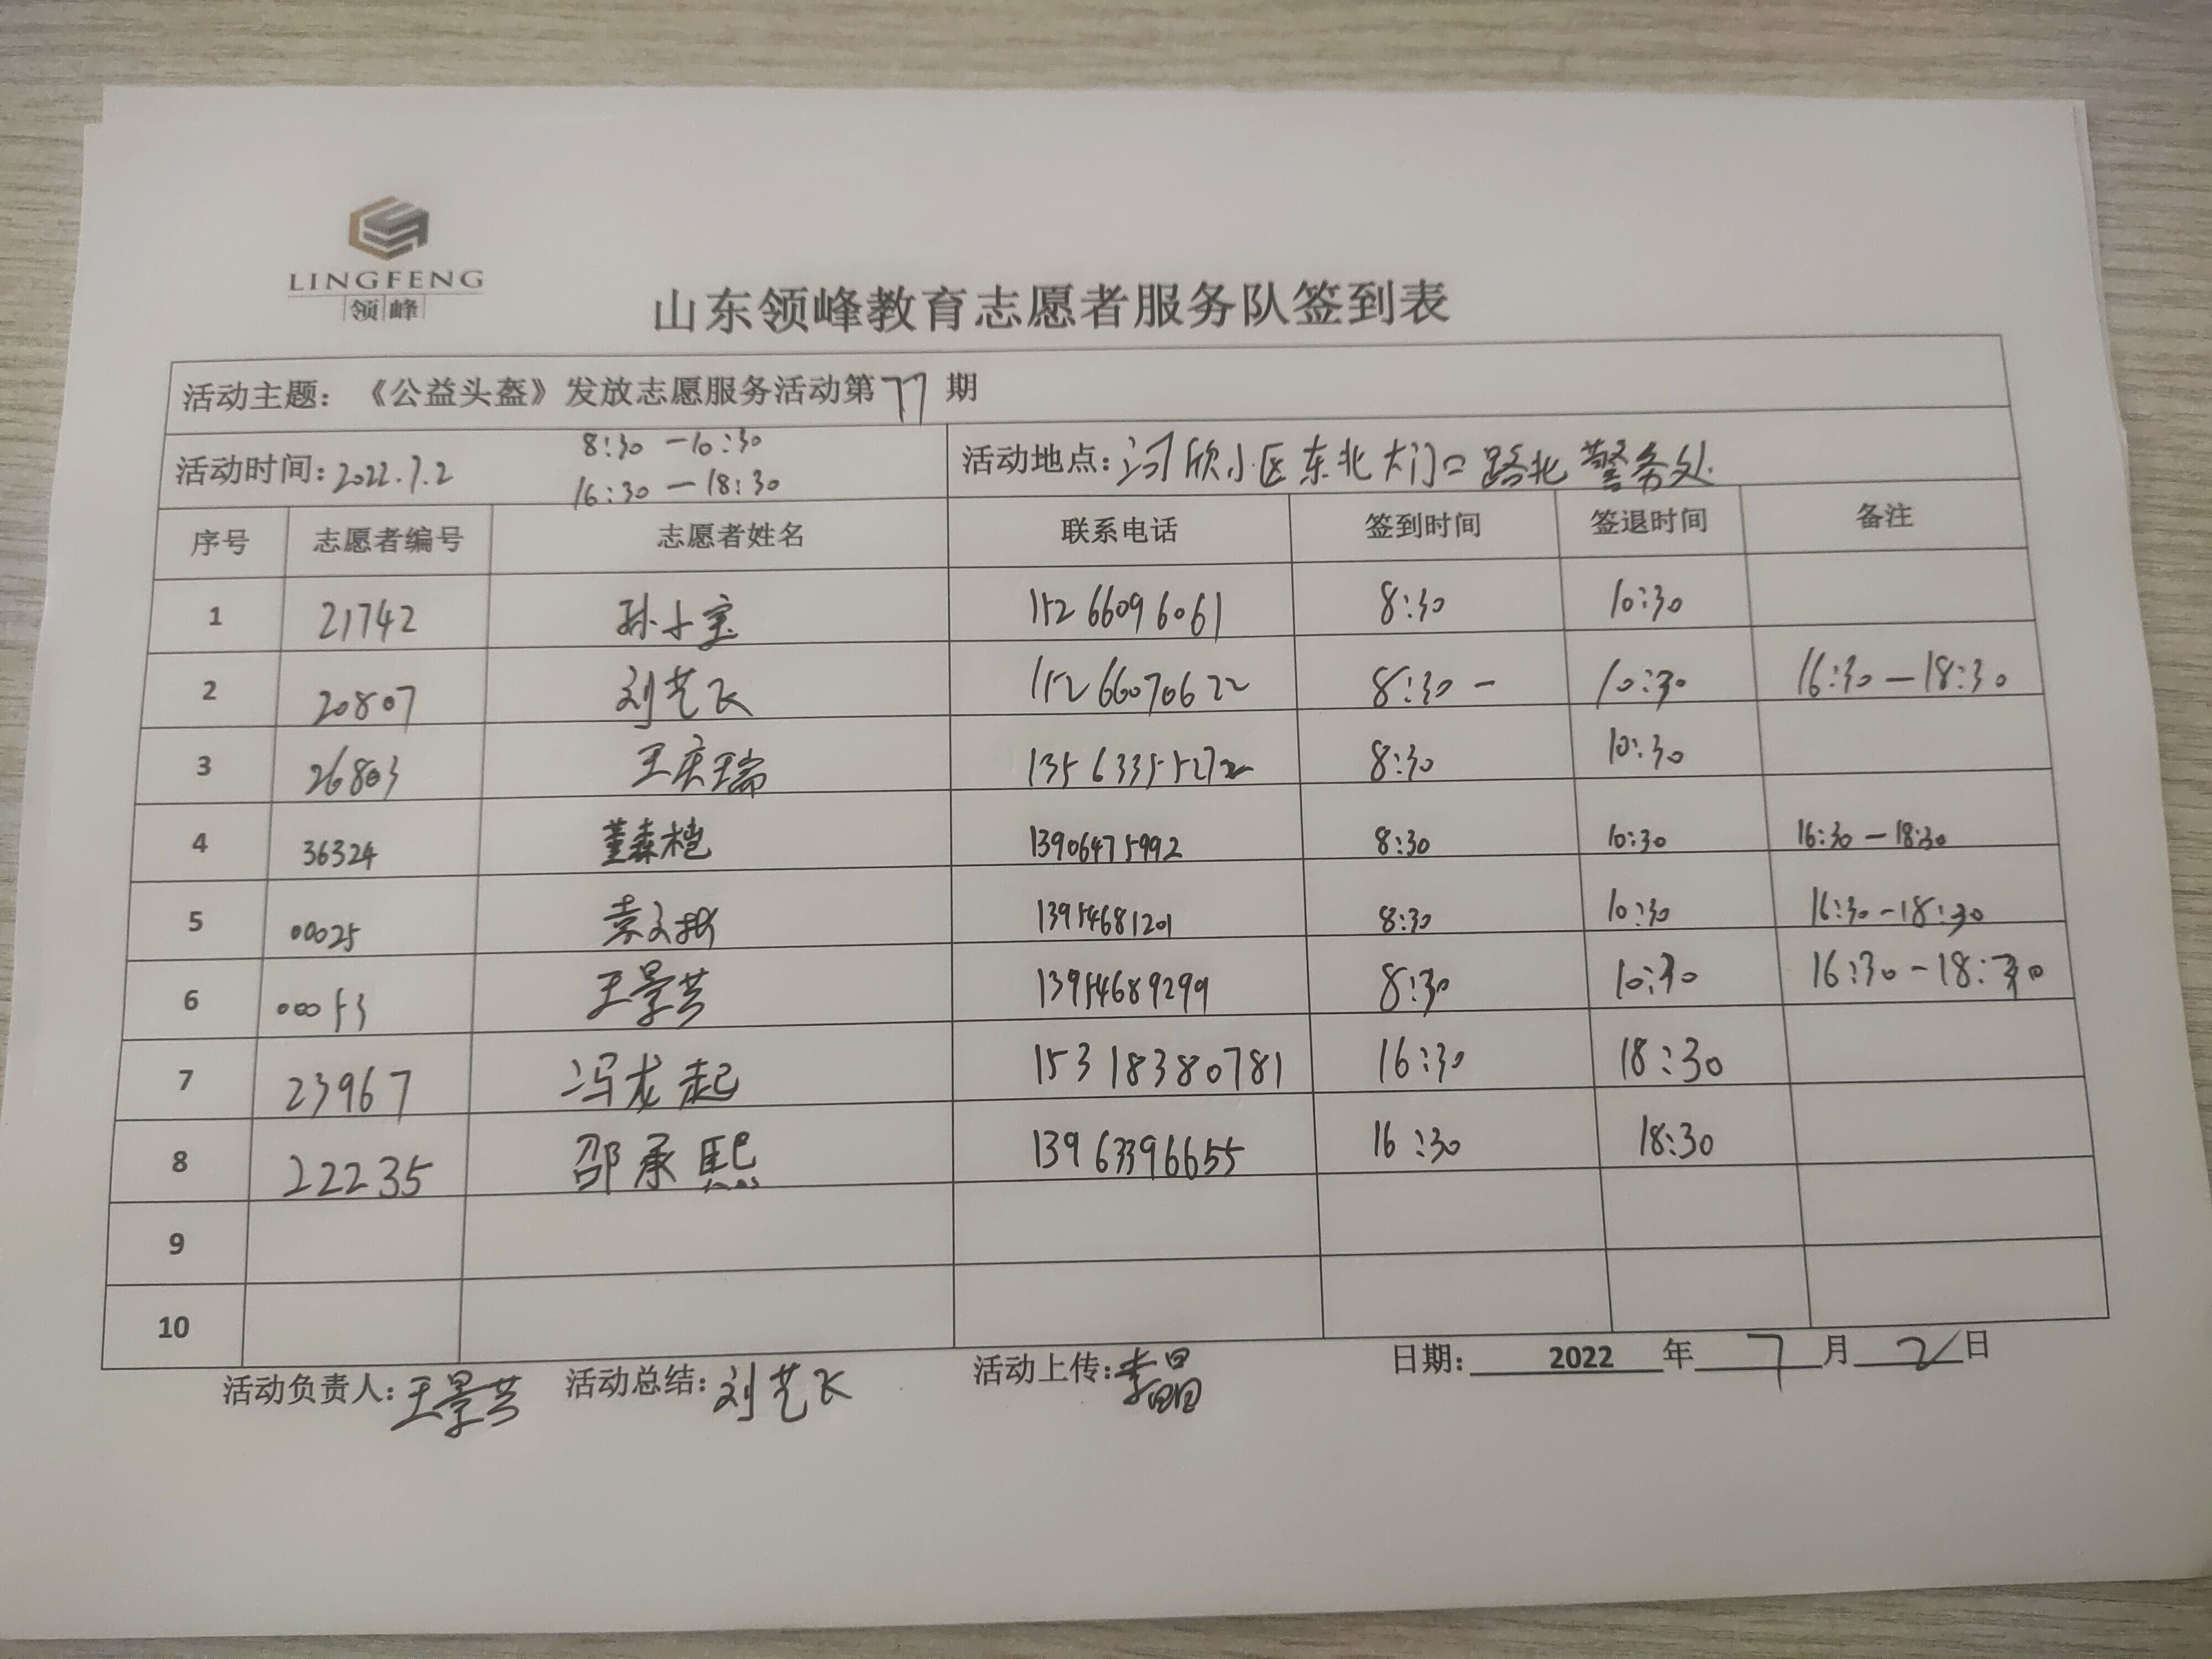 LINGFENG
领峰
山东领峰教育志愿者服务队签到表
活动主题：《公益头盔》发放志愿服务活动第77期
活动时间：2022.7.2 8:30-10:30 16:30-18:30 活动地点：河欣小区东北大门口路北警务处.
序号 志愿者编号 志愿者姓名 联系电话 签到时间 签退时间 备注
1 21742 孙小宝 15266096061 8:30 10:30
2 20807 刘艺飞 15266070622 8:30- 10:30 16:30-18:30
3 26803 王庆瑞 13563355272 8:30 10:30
4 36324 董森桤 13906475992 8:30 10:30 16:30-18:30
5 00025 袁文 13954681201 8:30 10:30 16:30-18:30
6 00053 王景芸 13954689299 8:30 10:30 16:30-18:30
7 23967 冯龙起 15318380781 16:30 18:30
8 22235 邵承熙 13963396655 16:30 18:30
9
10
活动负责人：王景芸 活动总结：刘艺飞 活动上传：李晶晶 日期：2022年7月2日